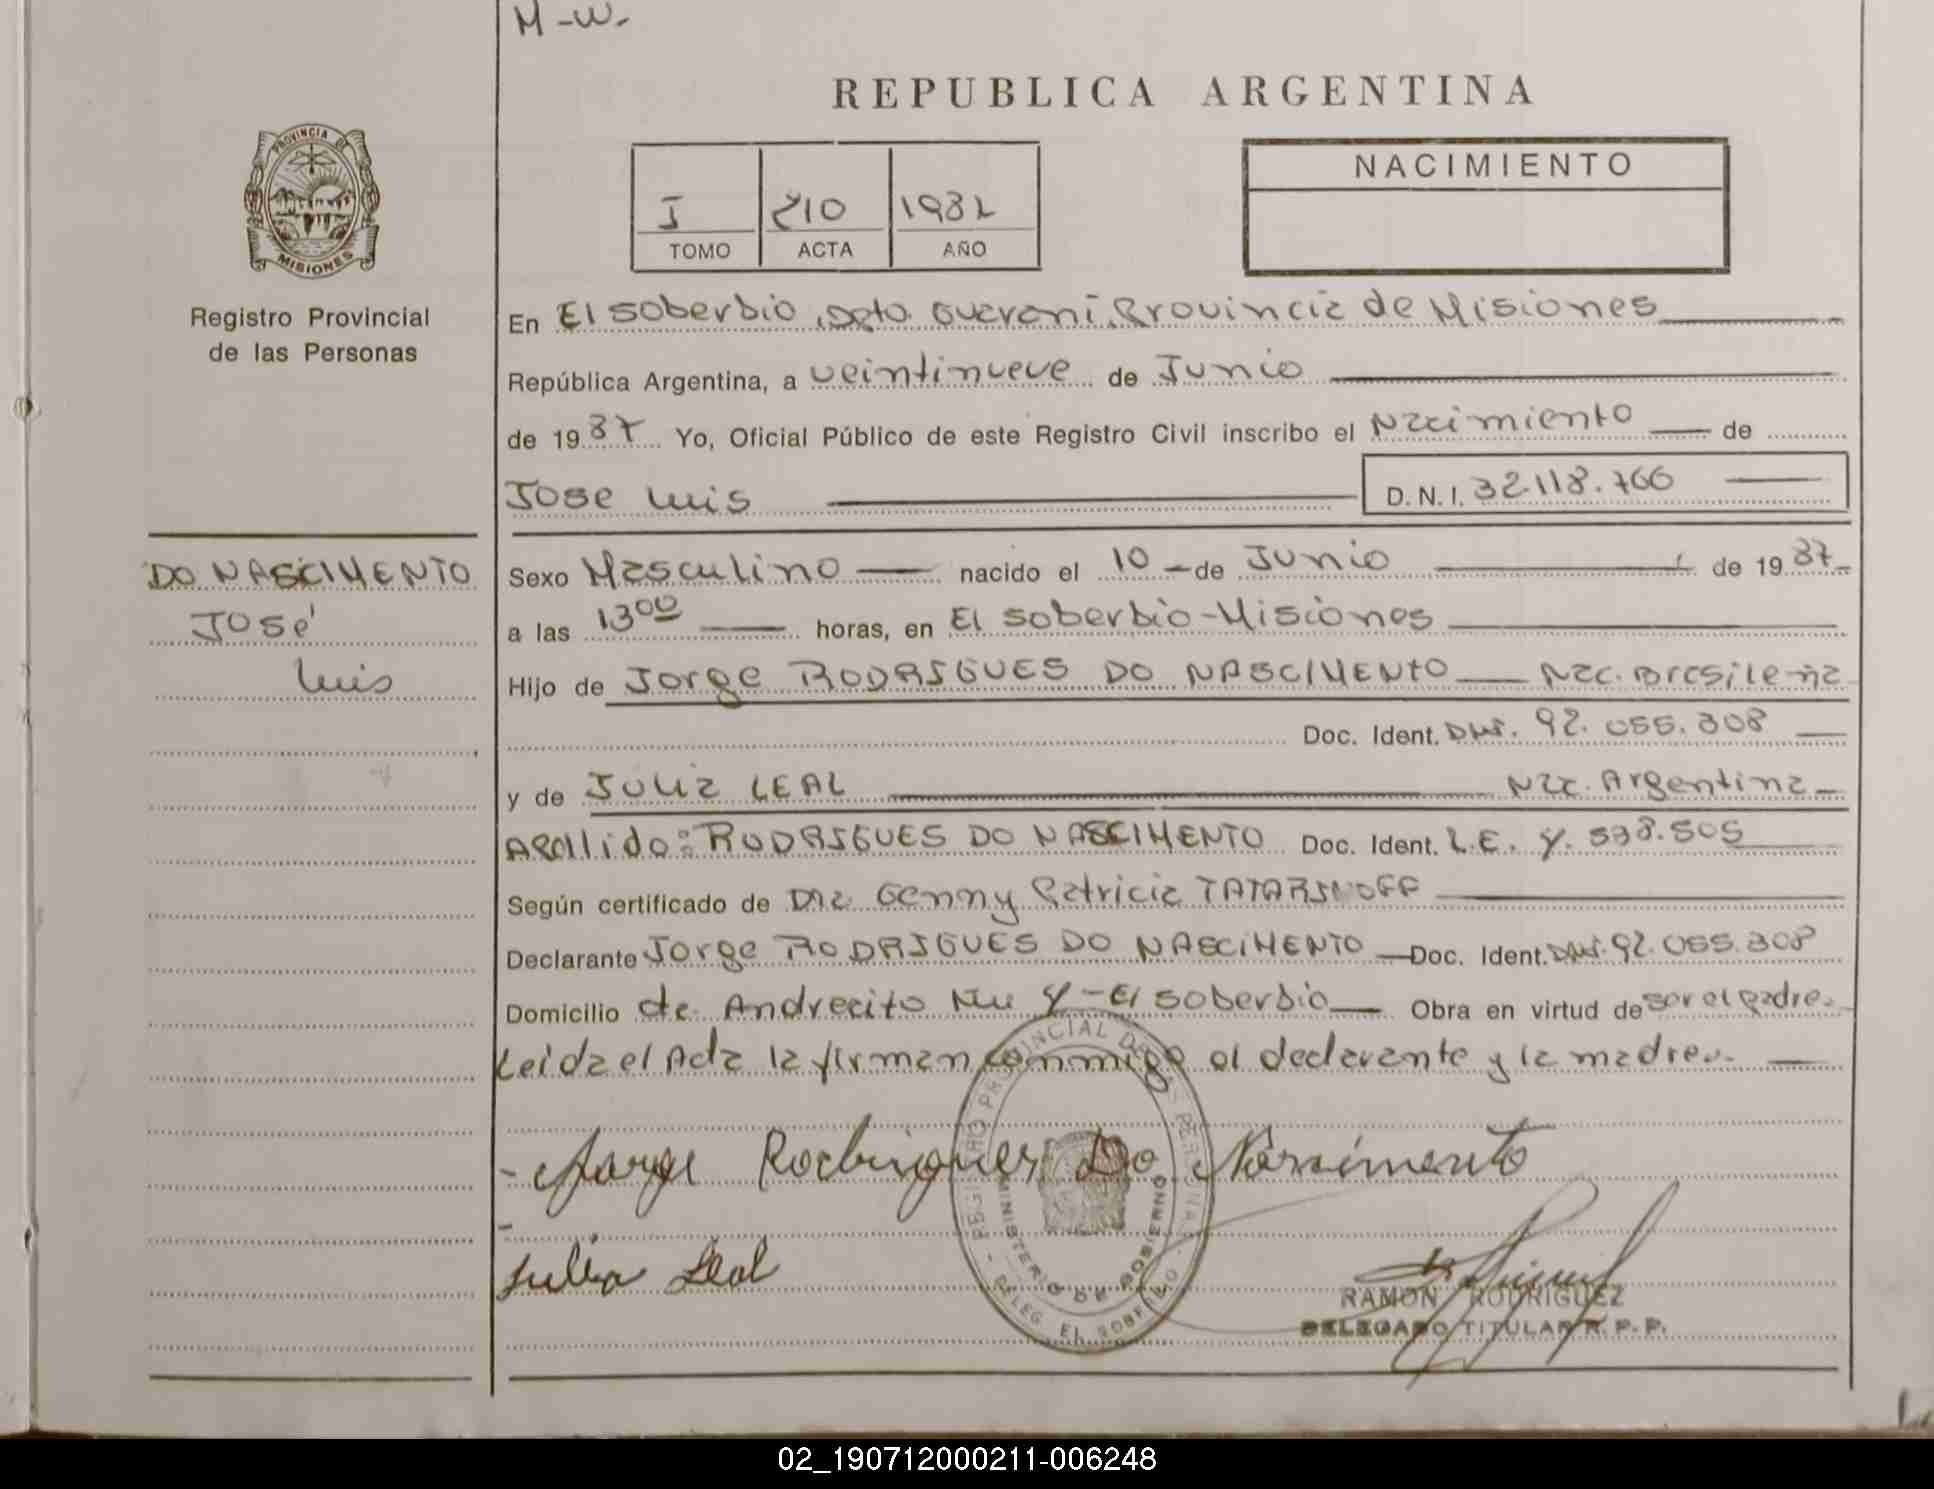 M-W.
REPUBLICA ARGENTINA
PROVINCIA DE
MISIONES
Registro Provincial
de las Personas
I 210
TOMO ACTA AÑO
NACIMIENTO
En El Soberbio, Dpto. Guaraní, Provincia de Misiones
República Argentina, a veintinueve de Junio
de 1987 Yo, Oficial Público de este Registro Civil inscribo el Nacimiento de
Jose Luis D.N.I. 32.118.766
DO NASCIMENTO
José
Luis
Sexo Masculino nacido el 10 de Junio de 1987
a las 13⁰⁰ horas, en El Soberbio-Misiones
Hijo de Jorge RODRIGUES DO NASCIMENTO Nac. Brasileña
Doc. Ident. 92.055.308
y de Julia LEAL Nac. Argentina
Apellido: RODRIGUES DO NASCIMENTO Doc. Ident. L.E.
Según certificado de Dra Genny Patricia TATARINOFF
Declarante Jorge RODRIGUES DO NASCIMENTO Doc. Ident. 92.055.308
Domicilio Andrecito El Soberbio Obra en virtud de ser el padre.
Leida el Acta la firman commigo el declarante y la madre.
Jorge Rodrigues Do Nascimento
Julia Leal
REGISTRO PROVINCIAL DE LAS PERSONAS
MINISTERIO DE GOBIERNO
DELEG EL SOBERBIO
RAMON RODRIGUEZ
DELEGADO TITULAR R. P. P.
02_190712000211-006248